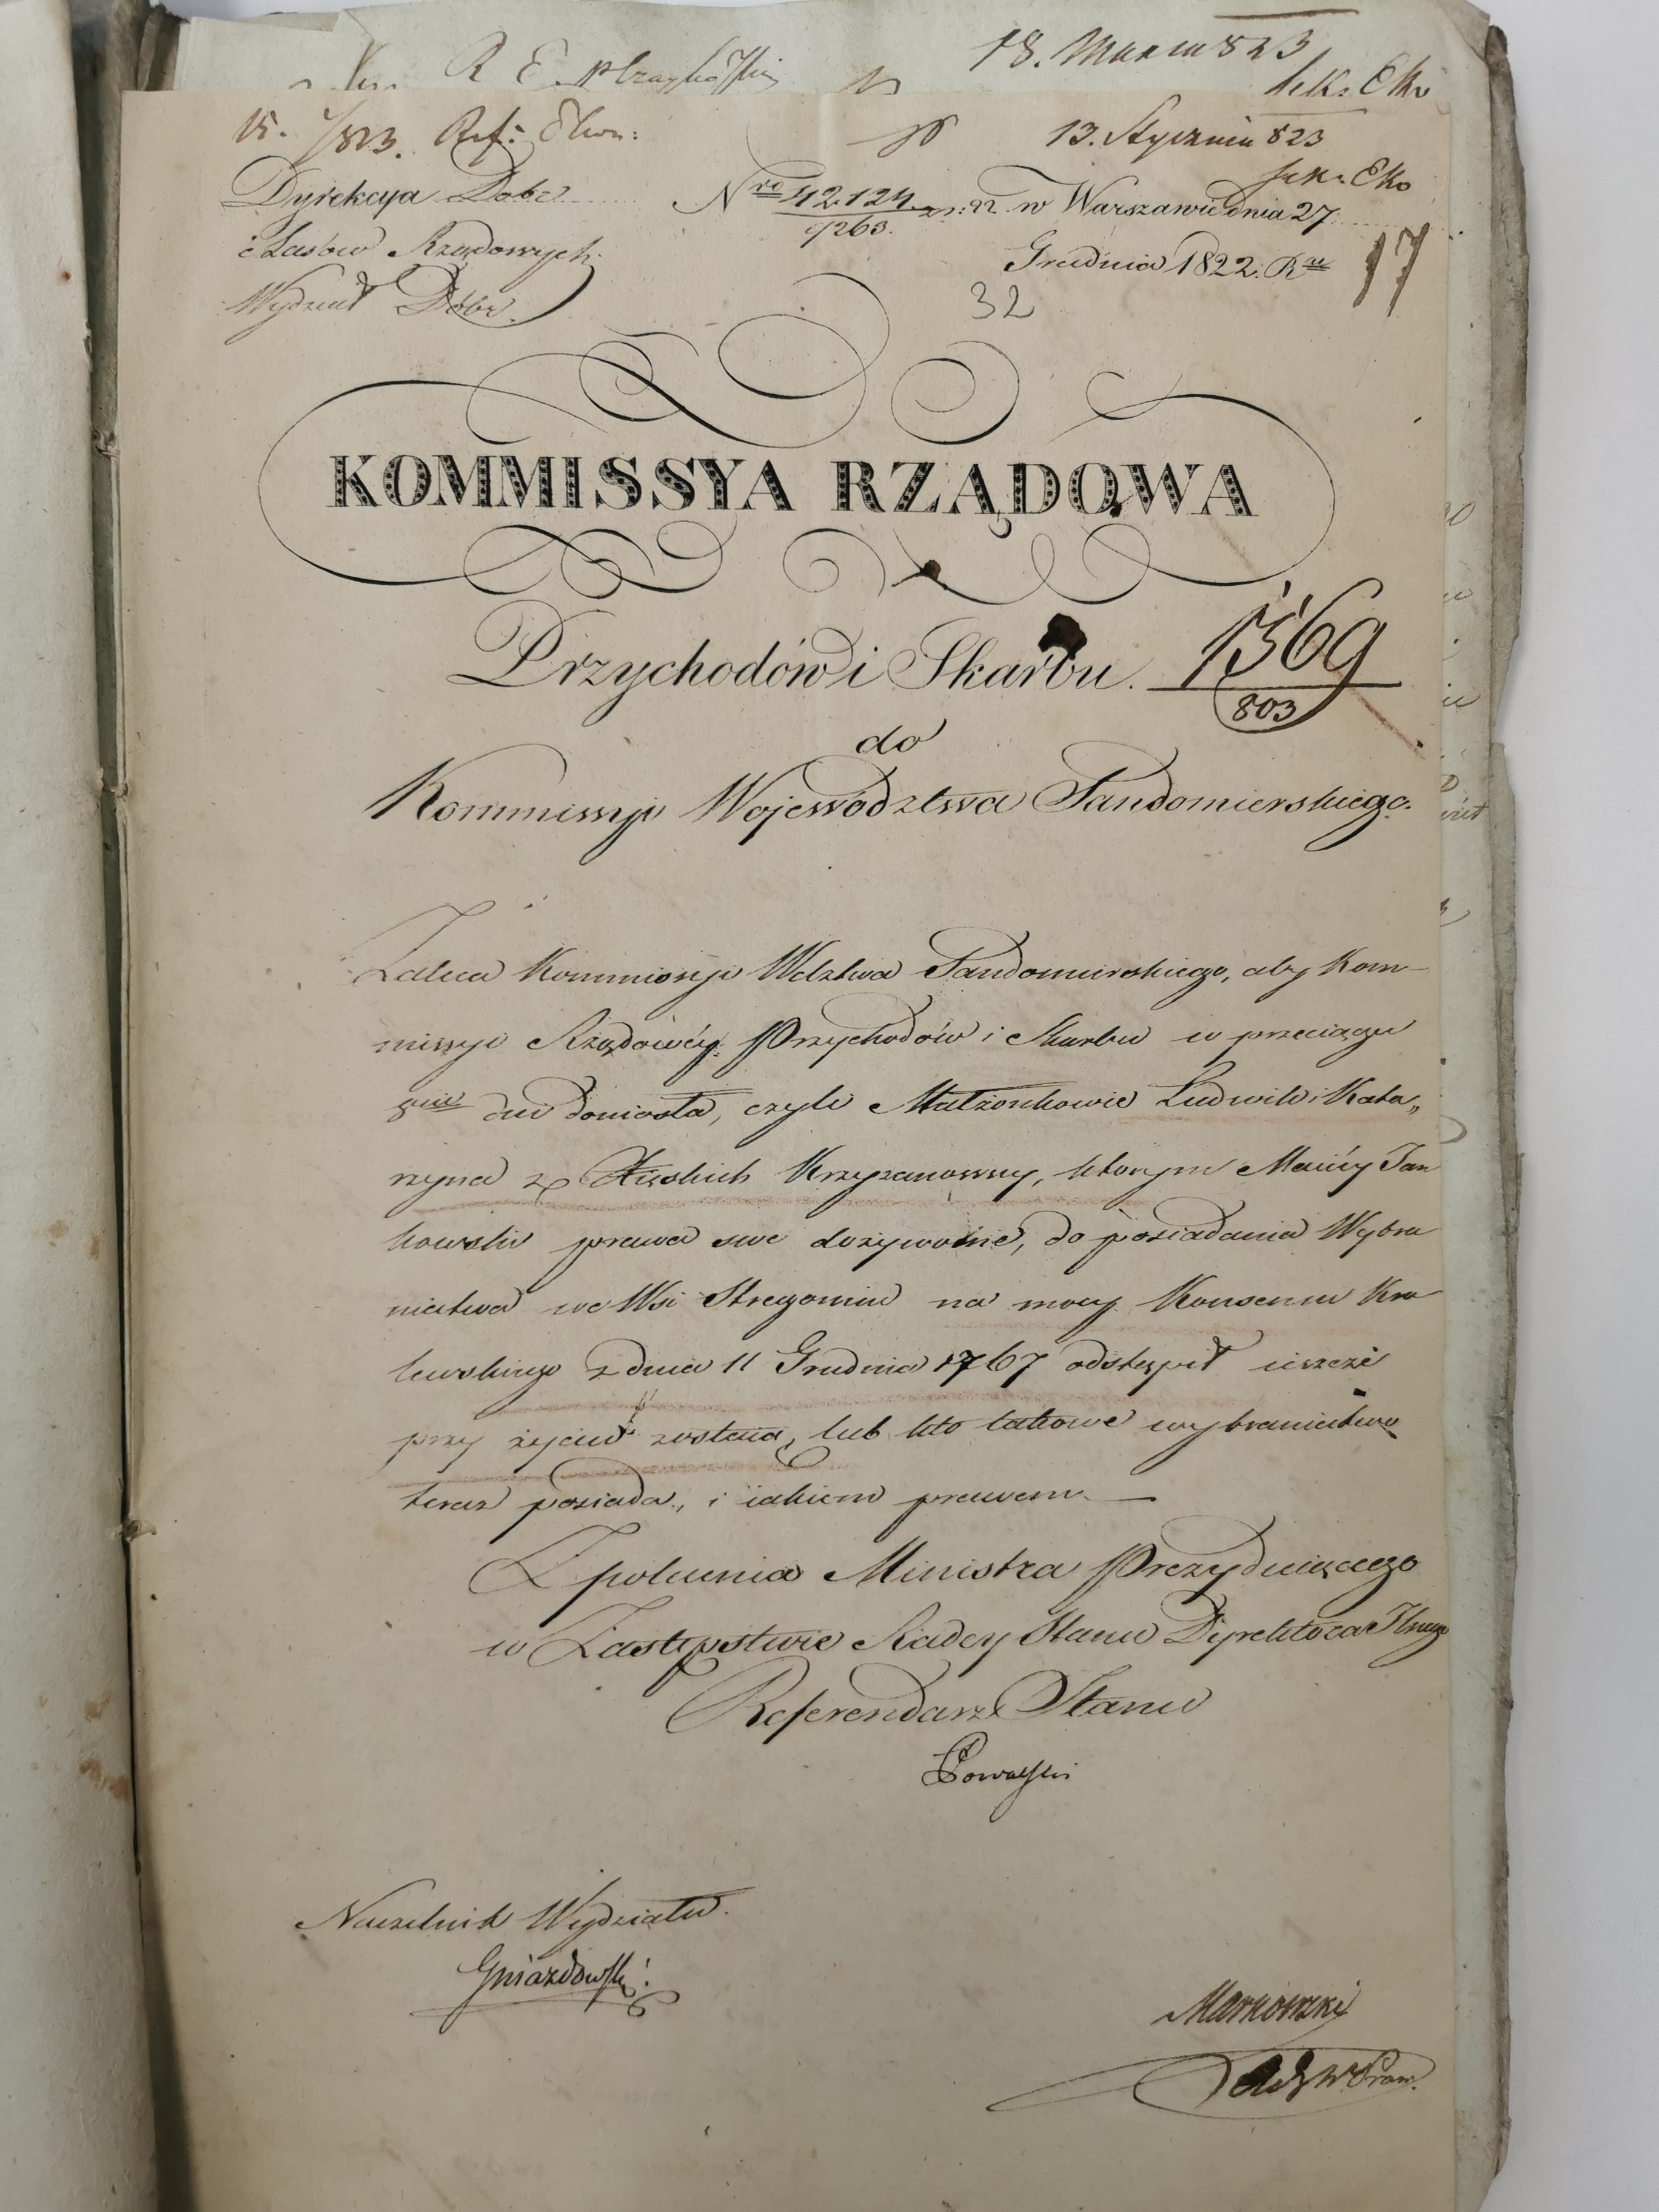 18. Marca 823
Sek: Eko
15. /823. Ref: Ekon:
13. Stycznia 823
Sek: Eko
Dyrekcya Dobr
i Lasów Rządowych
Wydział Dóbr.
Nro 42.124
9263.
w Warszawie dnia 27
Grudnia 1822. Ru
17
32
KOMMISSYA RZĄDOWA
Przychodów i Skarbu.
1569
803
do
Kommissyi Województwa Sandomierskiego.
Zaleca Kommissyi Wdztwa Sandomierskiego, aby Kom-
missyi Rządowéy Przychodów i Skarbu w przeciągu
8miu dni doniosła, czyli Małżonkowie Ludwik i Kata„
rzyna z Krzyzanowscy, którym Maciéy Jan
kowski prawa swe dożywotnie, do posiadania Wybra
niectwa we Wsi Stregomiu na mocy Konsensu Kró
lewskiego z dnia 11 Grudnia 1767 odstąpił ieszcze
przy życiu zostaią, lub kto takowe wybraniectwo
teraz posiada, i iakiem prawem. —
Z polecenia Ministra Prezyduiącego
w Zastępstwie Radcy Stanu Dyrektora Jlnego
Referendarz Stanu
Naczelnik Wydziału.
Gniazdowski